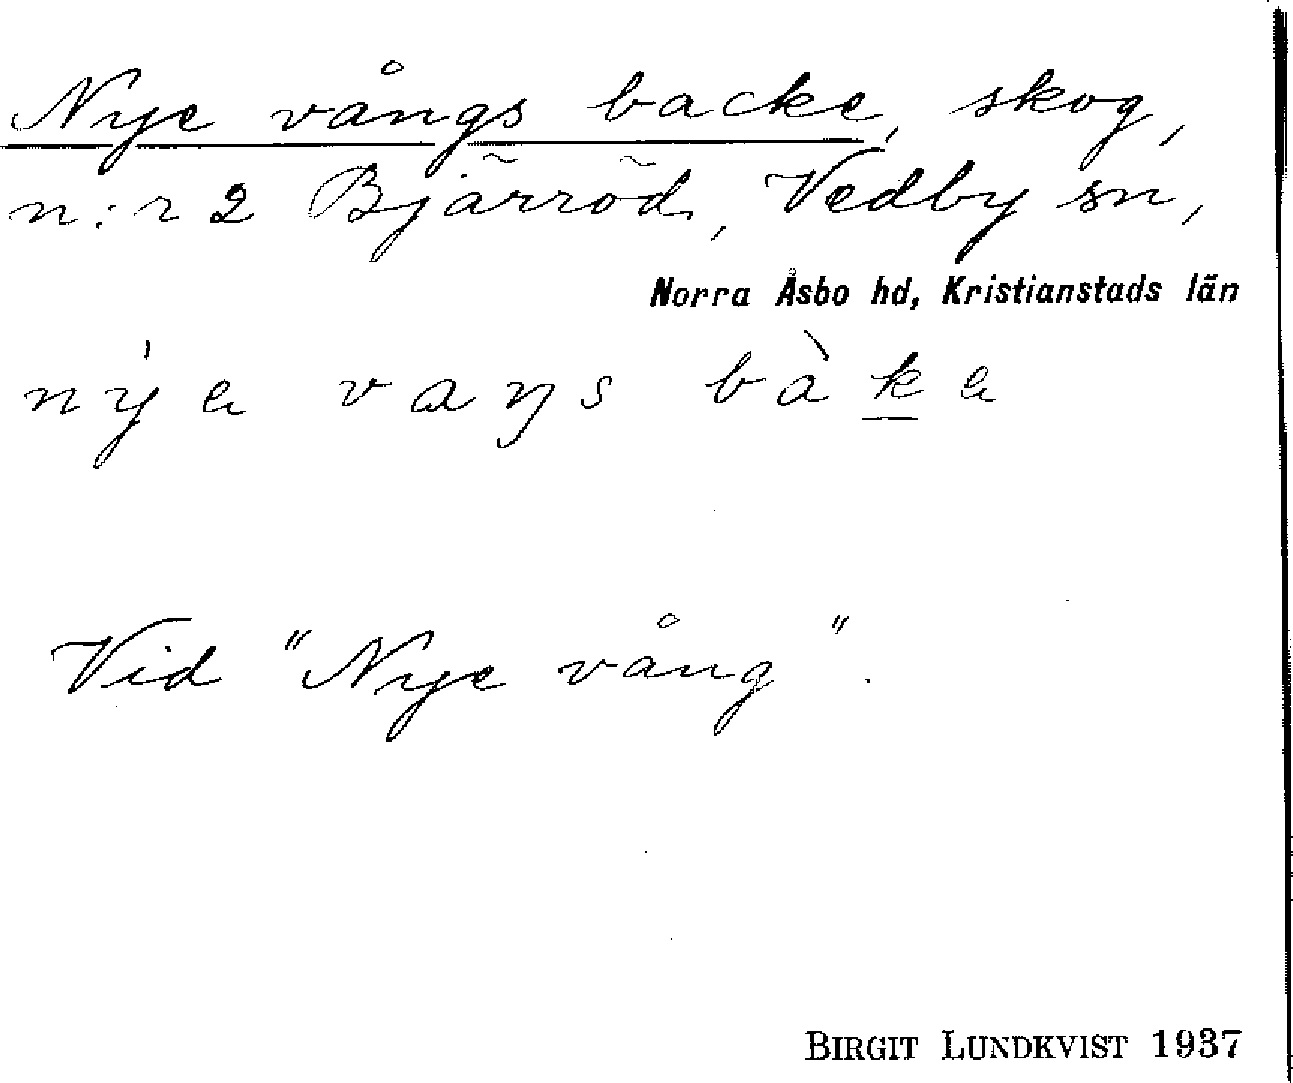 Nye vångs backe, skog,
n:r 2 Bjärröd, Vedby sn,
Norra Åsbo hd, Kristianstads län
ny̍a vaŋs bàk̲a
Vid "Nye vång".
BIRGIT LUNDKVIST 1937